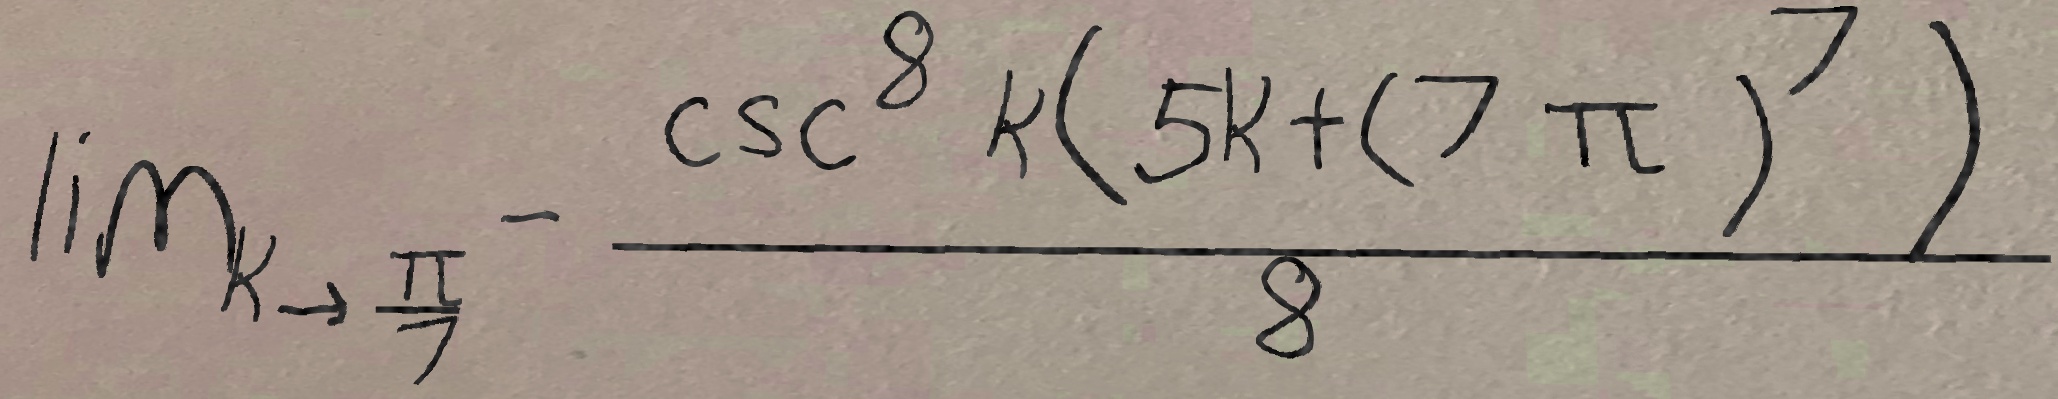 \lim_{k \to \frac{\pi}{7}} - \frac{\csc^8 k(5k+(7\pi)^7)}{8}